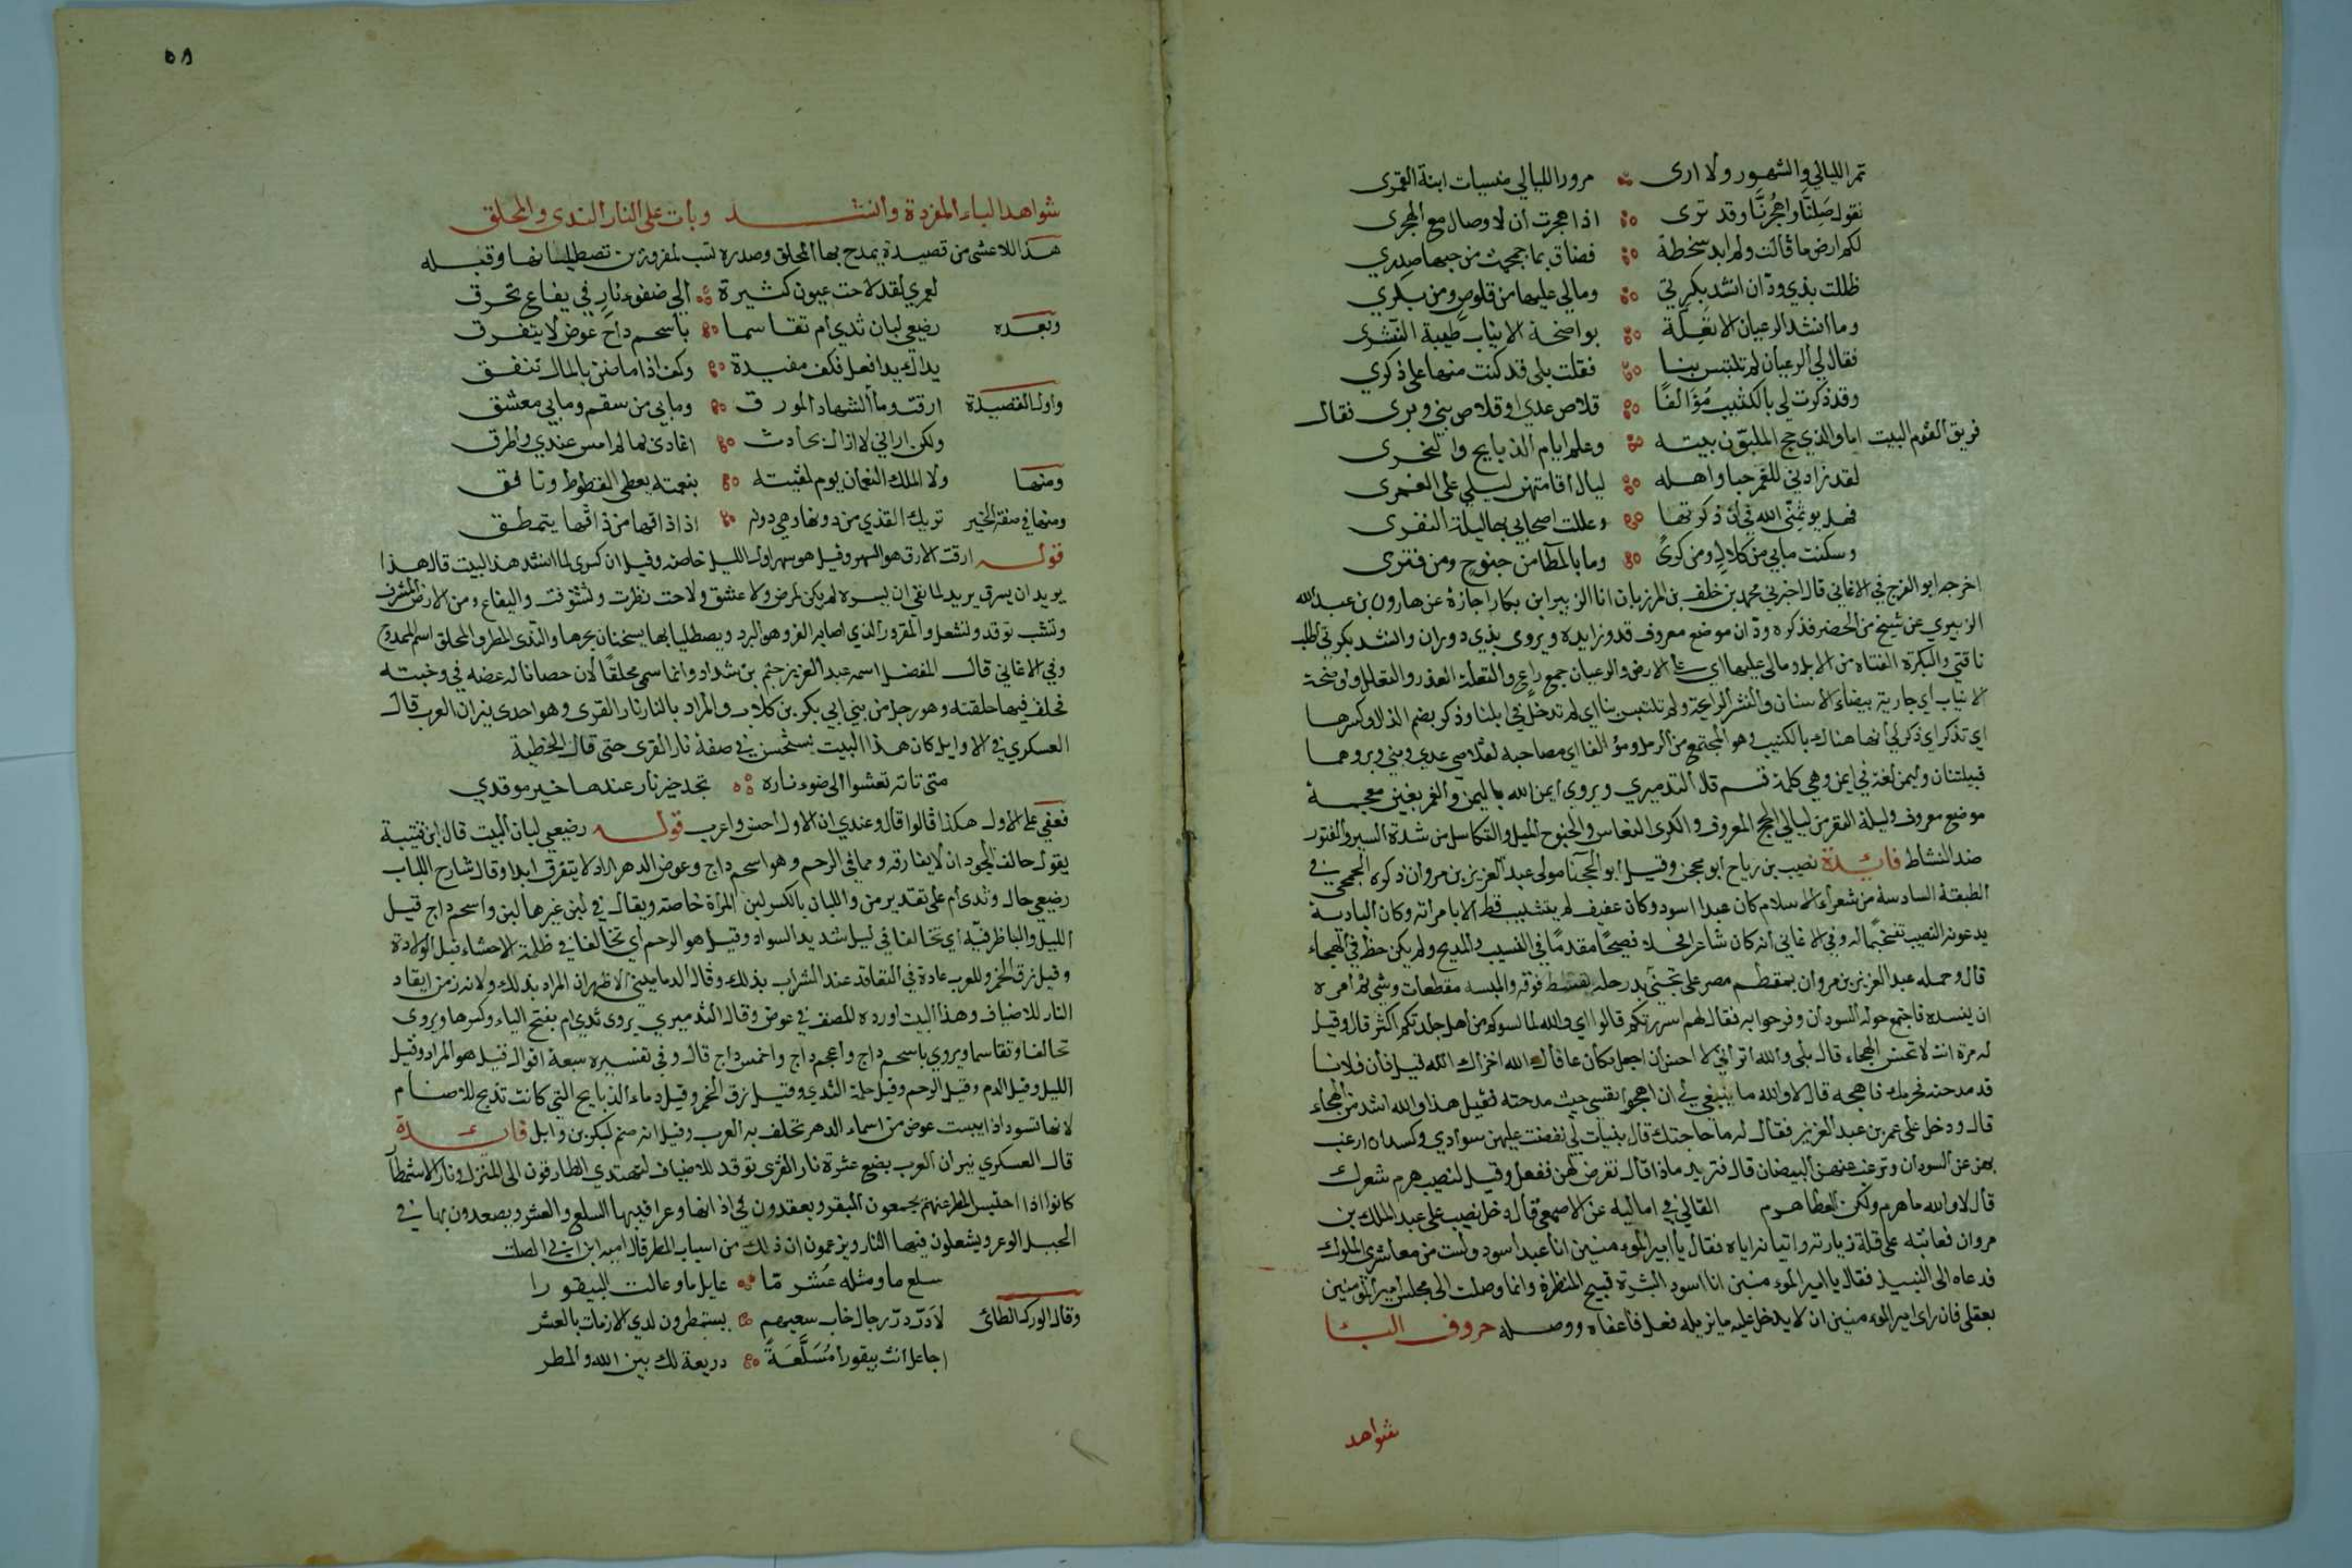 تمر الليالي والشهور ولا ارى ∴ مرور الليالي منسيات ابنة القمرى
نقول صَلِنَّا واهجُرنَّا وقد ترى ∴ اذا هجرت ان لا وصال مع الهجرى
لكم ارض ما قالت ولم ابد سخطة ∴ فضاق بما جمجمت من حبها صدري
ظللت بذي ودّان انشد بكرتي ∴ ومالي عليها من قلوص ومن بكري
وما انشد الرعيان الا تعِلَّة ∴ بواضحة الانياب طيبة النشرى
فقال لي الرعيان لم تلتبس بنا ∴ فقلت بلى قد كنت منها على ذكري
وقد ذكرت لي بالكثيب مُؤَالفًا ∴ قلاص عدي او قلاص بني وبرى فقال
فريق القوم البيت اما والذي حج الملبون بيته ∴ وعلم ايام الذبايح والنحرى
لقد زادني للغَمر حبا واهله ∴ ليال اقامتهن ليلى على الغمرى
فهل يوثمنّى الله في ان ذكرتها ∴ وعللت اصحابي بها ليلة النفرى
وسكنت مابي من كلالٍ ومن كرىً ∴ وما بالمطا من جنوحٍ ومن فترى
اخرجه ابو الفرج في الاغاني قال اخبرني محمد بن خلف بن المرزبان انا الزبير ابن بكار اجازة عن هارون بن عبد الله
الزبيري عن شيخ من الخضر فذكره ودّان موضع معروف قدوزايده ويروى بذي دوران وانشد بكرتي اطلب
ناقتي والبكرة الفتاة من الابل ومالي عليها اي على الارض والرعيان جمع راعٍ والتعلة العذر والتعلل وواضحة
الانياب اي جارية بيضاء الاسنان والنشر الرايحة ولم تلتبس بنا اي لم تدخل في ابلنا وذكر بضم الذال وكسرها
اي تذكر اي ذكر لي انها هناك بالكثيب وهو المجتمع من الرمل ومؤالفا اي مصاحبه لقلاص عدي وبني وبر وهما
قبيلتنان وليمن لغة في ايمن وهي كلمة قسم قال التدميري ويروى ايمن الله باليمن والغمر بغين معجمة
موضع معروف وليلة النفر من ليالي الحج المعروف والكرى النعاس والجنوح الميل والتكاسل من شدة السير والفتور
ضد النشاط فائدة نصيب بن رباح ابو محجن وقيل ابو الحجنا مولى عبد العزيز بن مروان ذكره الجمحي في
الطبقة السادسة من شعراء الاسلام كان عبدا اسود وكان عفيف لم يتشبب قط الا بامراته وكان البادية
يدعونه النصيب تفخيمًا له وفي الاغاني انه كان شاعرا فحلا فصيحًا مقدمًا في النسيب والمديح ولم يكن حظ في الهجاء
قال وحمله عبد العزيز بن مروان بمقطم مصر على بختي برحله فوقه والبسه مقطعات وشي ثم امره
ان ينشده فاجتمع حوله السودان وفرحوا به فقال لهم اسررتكم قالوا اي والله قال والله لما يسوكم من اهل جلدتكم اكثر قال وقيل
له مرة انت لا تحسن الهجاء قال بلى والله اتراني لا احسن ان اجعل مكان عافاك الله اخزاك الله قيل فان فلانا
قد مدحته فحرمك فاهجه قال لا والله ما ينبغي لي ان اهجوا نفسي حيث مدحته فقيل هذا والله اشد من الهجاء
قال ودخل على عمر بن عبد العزيز فقال له ما حاجتك قال بنيات لي نفضت عليهن سوادي وكسدن ارغب
بهن عن السودان وترغب عنهن البيضان قال فتريد ماذا قال تفرض لهن ففعل وقيل لنصيب هرم شعرك
قال لا والله ما هرم ولكن العطا هرم القالي في اماليه عن الاصمعي قال دخل نصيب على عبد الملك بن
مروان فعاتبه على قلة زيارته واتيانه اياه فقال يا امير المومنين انا عبد اسود ولست من معاشري الملوك
فدعاه الى النبيذ فقال يا امير المومنين انا اسود البشرة قبيح المنظرة وانما وصلت الى مجلس امير المومنين
بعقلي فان راى امير المومنين ان لا يدخل عليه ما يزيله فعل فاعفاه ووصله حروف البا
شواهد
٥٨
شواهد الباء المفردة وانشد وبات على النار الندى والمحلق
هذا للاعشى من قصيدة يمدح بها المحلق وصدره تشب لمقرورين يصطليانها وقبله
لعمري لقد لاحت عيون كثيرة ∴ الى ضوء نارٍ في يفاع تحرق
وبعده رضيعي لبان ثدي ام تقاسما ∴ باسحم داجٍ عوض لا يتفرق
يداك يدا فعل فكف مفيدة ∴ وكف اذا ما ضن بالمال تنفق
واول القصيدة ارقت وما الشهاد المورق ∴ ومابي من سقم ومابي معشق
ولكن اراني لا ازال بحادث ∴ اغادى بما لم امس عندي واطرق
ومنها ولا الملك النعمان يوم لقيته ∴ بنعمته يعطي القطوط ويافق
ومنها في صفة الخمر تريك القذي من دونها وهي دونه ∴ اذا ذاقها من ذاقها يتمطق
قوله ارقت الارق هو السهر وقيل هو سهر اول الليل خاصة وقيل ان كسرى لما انشد هذا البيت قال هذا
يريد ان يسرق يريد لما نفى ان يسره لم يكن لمرض ولا عشق ولاحت نظرت وتشوفت واليفاع من الارض المشرف
وتشب توقد وتشعل والمقرور الذي اصابه القر وهو البرد ويصطليا بها يسخنان بحرها والندى المطر والمحلق اسم الممدوح
وفي الاغاني قال المفضل اسمه عبد العزيز جثم بن شداد وانما سمى محلقًا لان حصانا له عضه في وجنته
فحلف فيها حلقته وهو رجل من بني ابي بكر بن كلاب والمراد بالنار نار القرى وهو احدى نيران العرب قال
العسكري في الاوايل كان هذا البيت يستحسن في صفة نار القرى حتى قال الحطية
متى تاته تعشوا الى ضوء ناره ∴ تجد خير نار عندها خير موقدي
فعفى على الاول هكذا قالوا قال وعندي ان الاول احسن واعرب قوله رضيعي لبان البيت قال ابن قتيبة
يقول حالف الجود ان لا يفارقه وهما في الرحم وهو اسحم داج وعوض الدهر اراد لا يتفرق ابدا وقال شارح اللباب
رضيعي حال وثدي ام على تقدير من واللبان بالكسر لبن المراة خاصة ويقال في لبن غيرها لبن واسحم داج قيل
الليل والبا ظرفيّة اي تحالفا في ليل شديد السواد وقيل هو الرحم اي تحالفا في ظلمة الاحشاء قبل الولادة
وقيل زق الخمر وللعرب عادة في التعاقد عند الشراب بذلك وقال الدماميني الاظهر ان المراد بذلك ولانه زمن ايقاد
النار للاضياف وهذا البيت اورده المصنف في عوض وقال التدميري يروى ثدي ام بفتح الياء وكسرها ويروى
تحالفا وتقاسما ويروي باسحم داج واعجم داج واخمس داج قال وفي تفسيره سبعة اقوال فقيل هو المراد وقيل
الليل وقيل الدم وقيل الرحم وقيل حلمة الثدي وقيل زق الخمر وقيل دماء الذبايح التي كانت تذبح للاصنام
لانها تسود اذا يبست عوض من اسماء الدهر تحلف به العرب وقيل انه صنم لبكر بن وايل فائدة
قال العسكري نيران العرب بضع عشرة نار القرى توقد للاضياف ليهتدي الطارقون الى المنزل ونار الاستمطار
كانوا اذا احتبس المطر عنهم يجمعون البقر ويعقدون في اذانها وعراقيبها السلع والعشر ويصعدون بها في
الجبل الوعر ويشعلون فيها النار ويزعمون ان ذلك من اسباب المطر قال اميه ابن ابي الصلت
سلع ما ومثله عُشَر مّا ∴ عايل ما وعالت البيقورا
وقال الورك الطائى لا دَرّ درّ رجال خاب سعيهم ∴ يستمطرون لدي الازمات بالعشر
اجاعل انت بيقورا مُسَلَّعَةً ∴ ذريعة لك بين الله والمطر